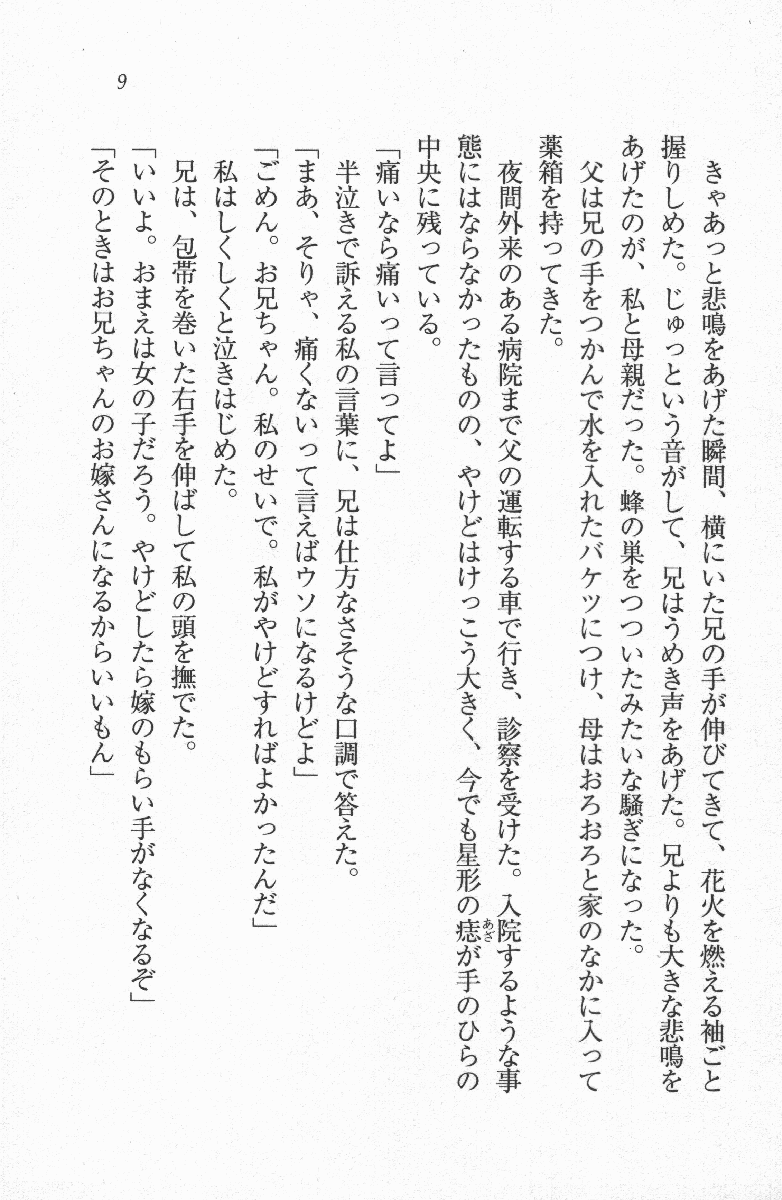 9
きゃあっと悲鳴をあげた瞬間、横にいた兄の手が伸びてきて、花火を燃える袖ごと
握りしめた。じゅっという音がして、兄はうめき声をあげた。兄よりも大きな悲鳴を
あげたのが、私と母親だった。蜂の巣をつついたみたいな騒ぎになった。
父は兄の手をつかんで水を入れたバケツにつけ、母はおろおろと家のなかに入って
薬箱を持ってきた。
夜間外来のある病院まで父の運転する車で行き、診察を受けた。入院するような事
態にはならなかったものの、やけどはけっこう大きく、今でも星形の痣あざが手のひらの
中央に残っている。
「痛いなら痛いって言ってよ」
半泣きで訴える私の言葉に、兄は仕方なさそうな口調で答えた。
「まあ、そりゃ、痛くないって言えばウソになるけどよ」
「ごめん。お兄ちゃん。私のせいで。私がやけどすればよかったんだ」
私はしくしくと泣きはじめた。
兄は、包帯を巻いた右手を伸ばして私の頭を撫でた。
「いいよ。おまえは女の子だろう。やけどしたら嫁のもらい手がなくなるぞ」
「そのときはお兄ちゃんのお嫁さんになるからいいもん」